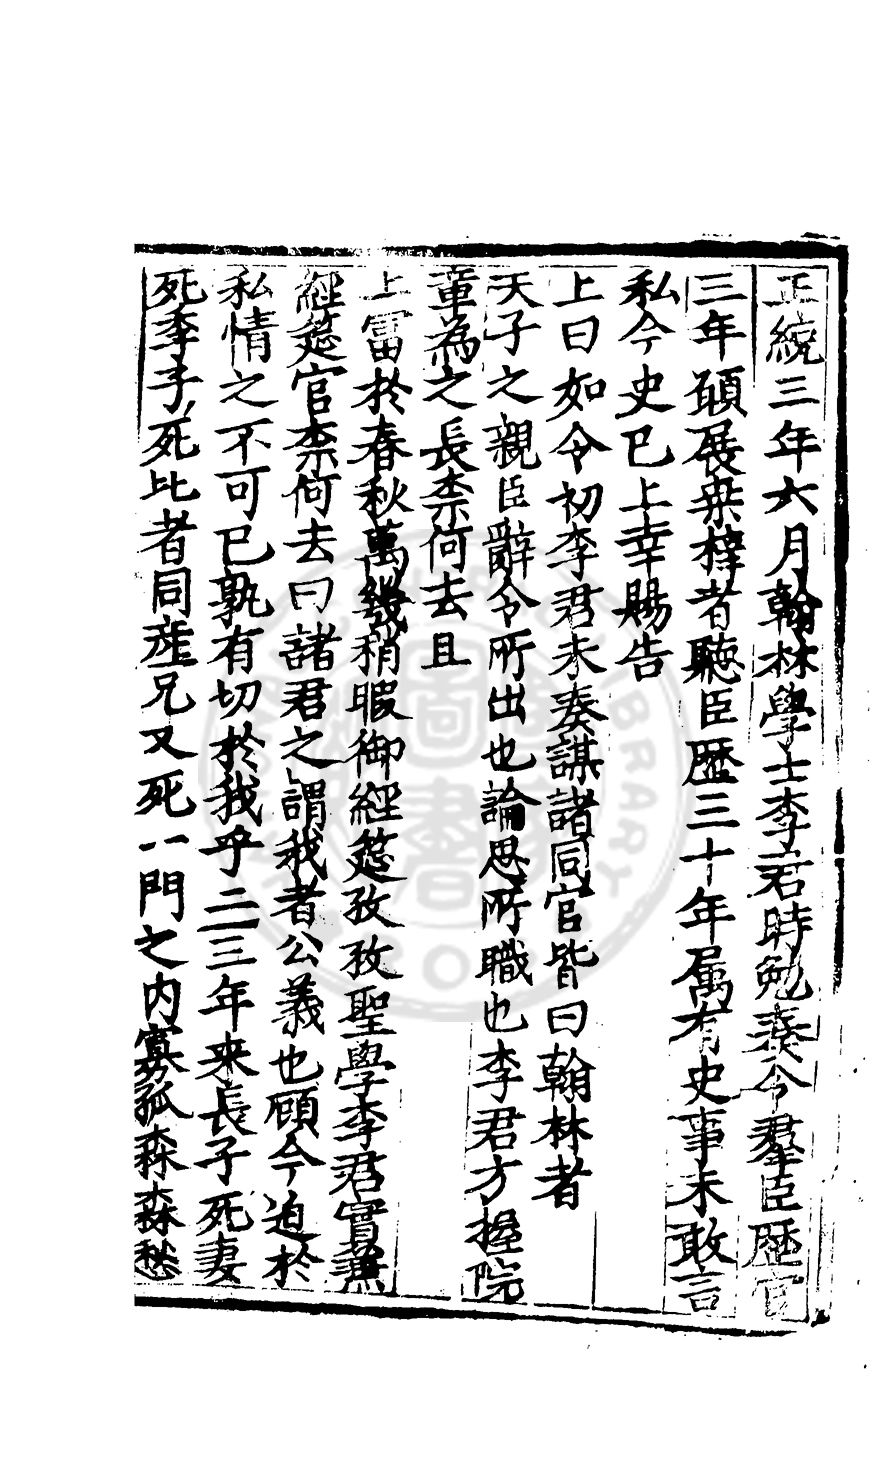 正統三年六月翰林學士李君時勉奏令羣臣歷官
三年碩展桒梓者聽臣歷三十年属有史事未敢言
私今史已上幸賜告
上曰如令初李君未奏謀諸同官皆曰翰林者
天子之親臣辭令所出也論思所職也李君方握院
章為之長柰何去且
上富於春秋萬幾稍暇御經筵孜孜聖學李君實兼
經筵官柰何去曰諸君之謂我者公義也顧今迫於
私情之不可已孰有切於我乎二三年来長子死妻
死季子死比者同産兄又死一門之内寡孤森森愁